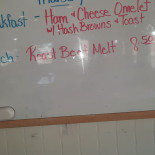 akfast - Ham & Cheese Omelet
w/ Hash Browns & toast
ch - Roast Beef Melt 8.50